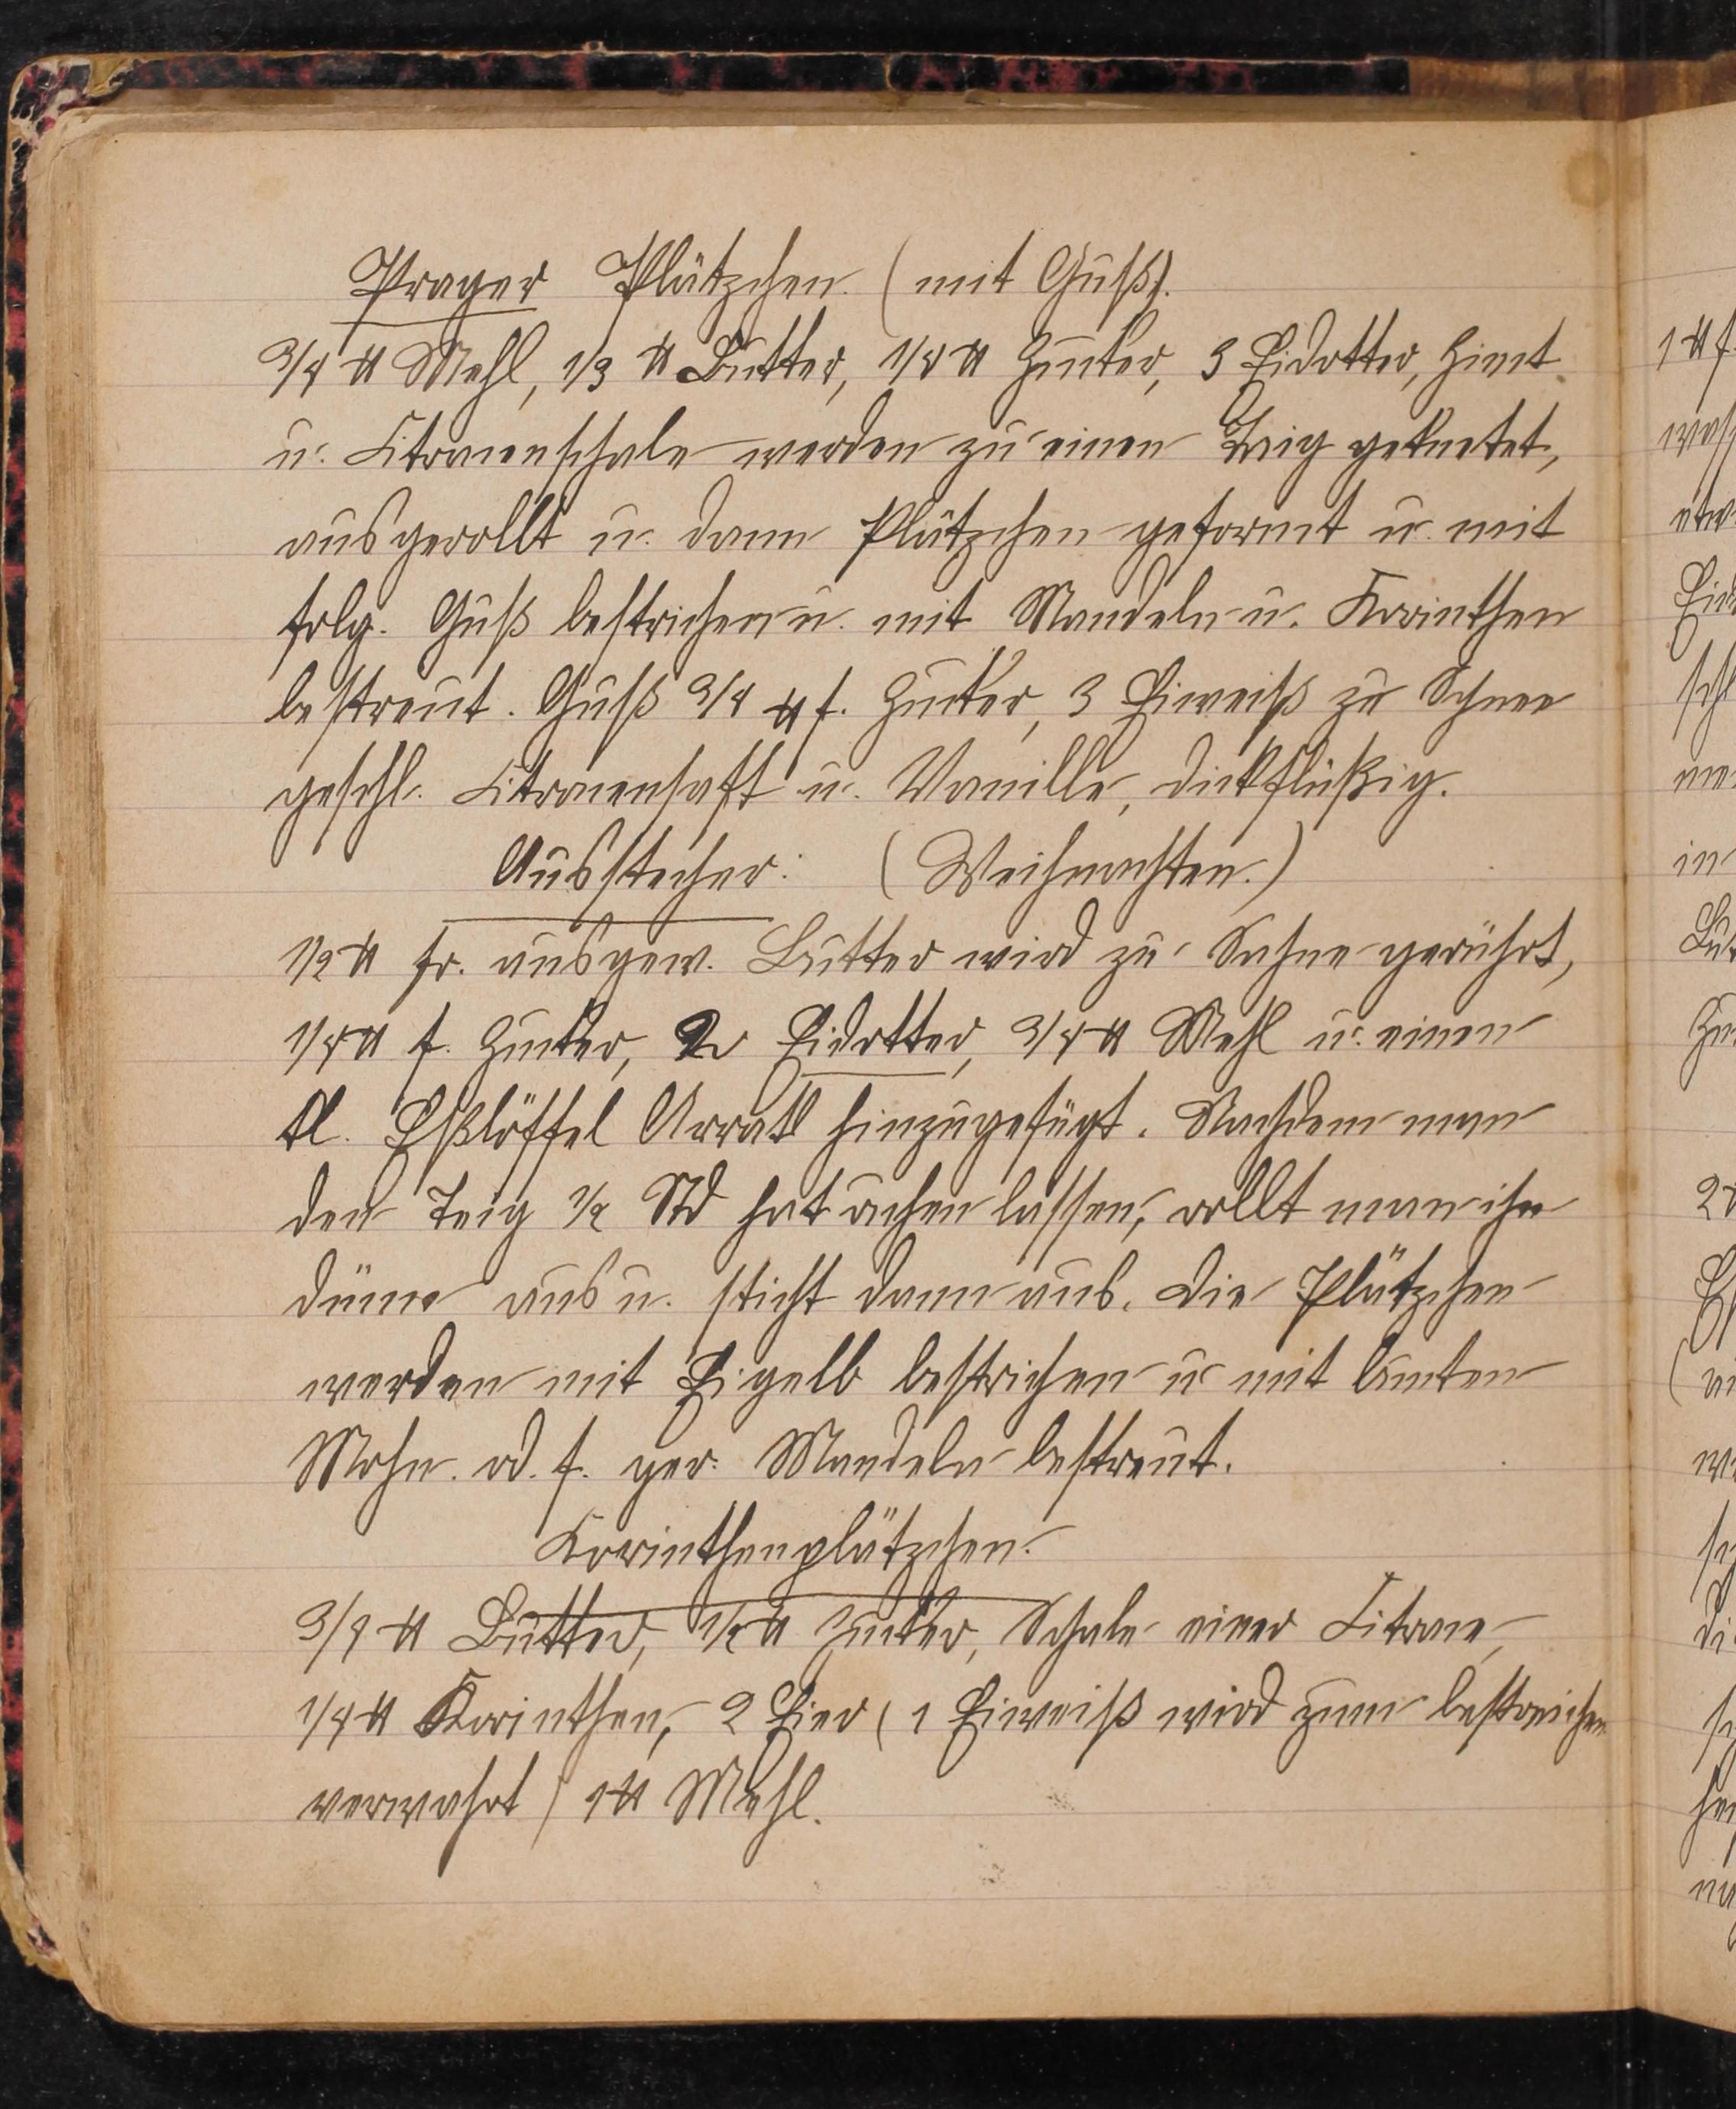 Prager Plätzchen. (mit Guß).
3/4 ℔ Mehl, 1/3 ℔ Butter, 1/4 ℔ Zucker, 3 Eidotter, Zimt
u. Citronenschale werden zu einen Teig geknetet,
ausgerollt u. dann Plätzchen geformt u. mit
folg. Guß bestrichen u. mit Mandeln u. Korinthen
bestreut. Guß 3/4 ℔ f. Zucker, 3 Eiweiß zu Schnee
geschl. Citronensaft u. Vanille, dickflüßig.
Ausstecher: (Weihnachten.)
1/2 ℔ fr. ausgew. Butter wird zu Sahne gerührt,
1/4 ℔ f. Zucker, 2 Eidotter, 3/4 ℔ Mehl u. einen
kl. Eßlöffel Arrak hinzugefügt. Nachdem man
den Teig 1/2 Std hat ruhen lassen, rollt man ihn
dünn aus u. sticht dann aus. Die Plätzchen
werden mit Eigelb bestrichen u mit bunten
Mohn od. f. ger. Mandeln bestreut.
Korinthenplätzchen.
3/4 ℔ Butter, 1/2 ℔ Zucker, Schale einer Citrone,
1/4 ℔ Korinthen, 2 Eier (1 Eiweiß wird zum bestreichen
verwahrt) 1 ℔ Mehl.